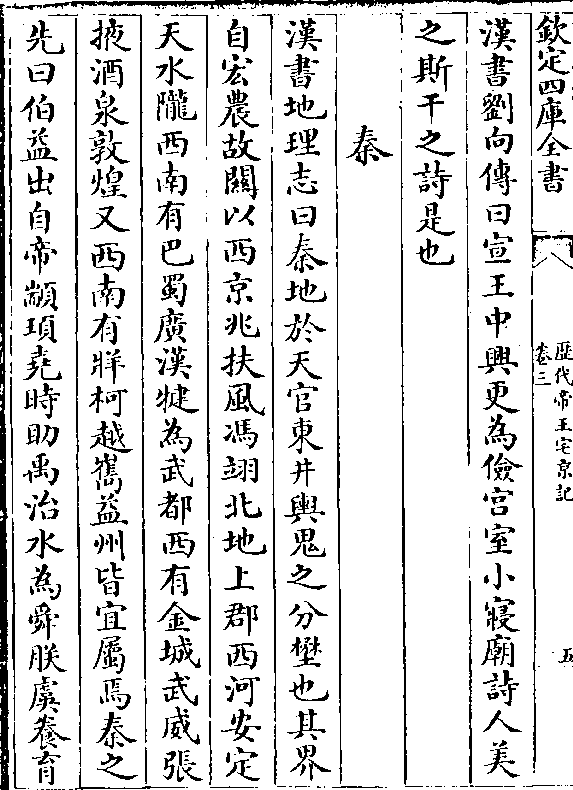 欽定四庫全書
歷代帝王宅京記
卷三
五
漢書劉向傳曰宣王中興更為儉宮室小寢廟詩人美
之斯干之詩是也
秦
漢書地理志曰秦地於天官東井輿鬼之分壄也其界
自宏農故關以西京兆扶風馮翊北地上郡西河安定
天水隴西南有巴蜀廣漢犍為武都西有金城武威張
掖酒泉敦煌又西南有牂柯越巂益州皆宜屬焉秦之
先曰伯益出自帝顓頊堯時助禹治水為舜朕虞養育